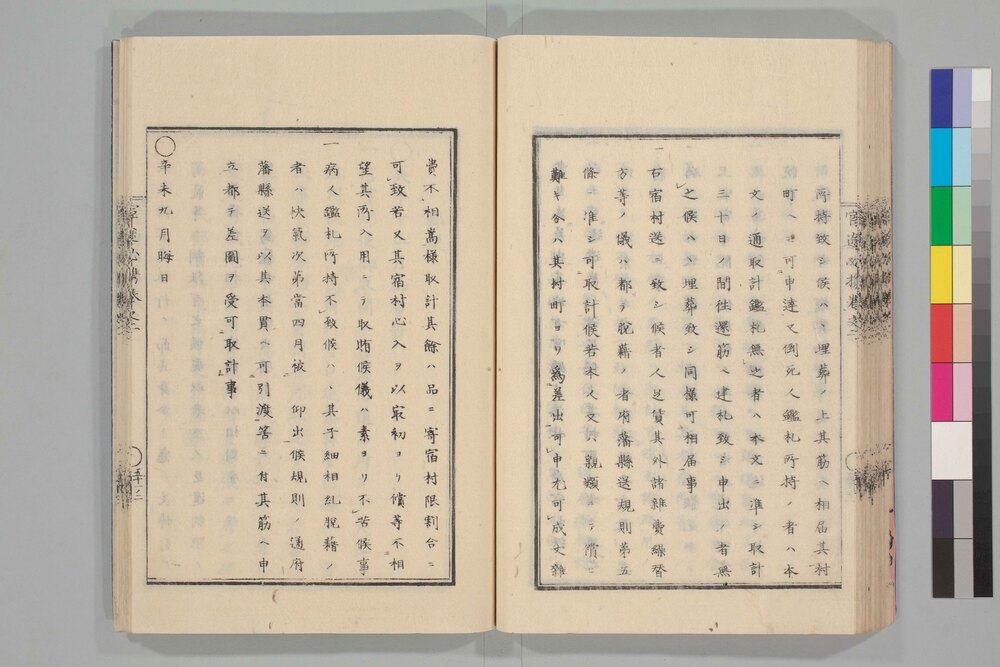 所持致シ候ハヽ埋葬ノ上其筋ヘ相届其村
町ヘモ可申達又倒死人鑑札所持ノ者ハ本
文ノ通取計鑑札無之者ハ本文ニ準シ取計
三十日ノ間往還筋ヘ建札致シ申出ノ者無
之候ハヽ埋葬致シ同様可相届事
一右宿村送ニ致シ候者人足賃其外諸雑費繰替
方等ノ儀ハ都テ脱籍ノ者府藩縣送規則第五
條ニ准シ可取計候若本人又ハ親類ニテ償ニ
難キ分ハ其村町ヨリ為差出可申尤可成丈雑
費不相嵩様取計其餘ハ品ニ寄宿村限割合ニ
可致若又其宿村心入ヲ以最初ヨリ償等不相
望其所入用ニテ取賄候儀ハ素ヨリ不苦候事
一病人鑑札所持不致候ハヽ其子細相糺脱籍ノ
者ハ快氣次第當四月被 仰出候規則ノ通府
藩縣送ヲ以其本貫ヘ可引渡筈ニ付其筋ヘ申
立都テ差圖ヲ受可取計事
〇辛未九月晦日